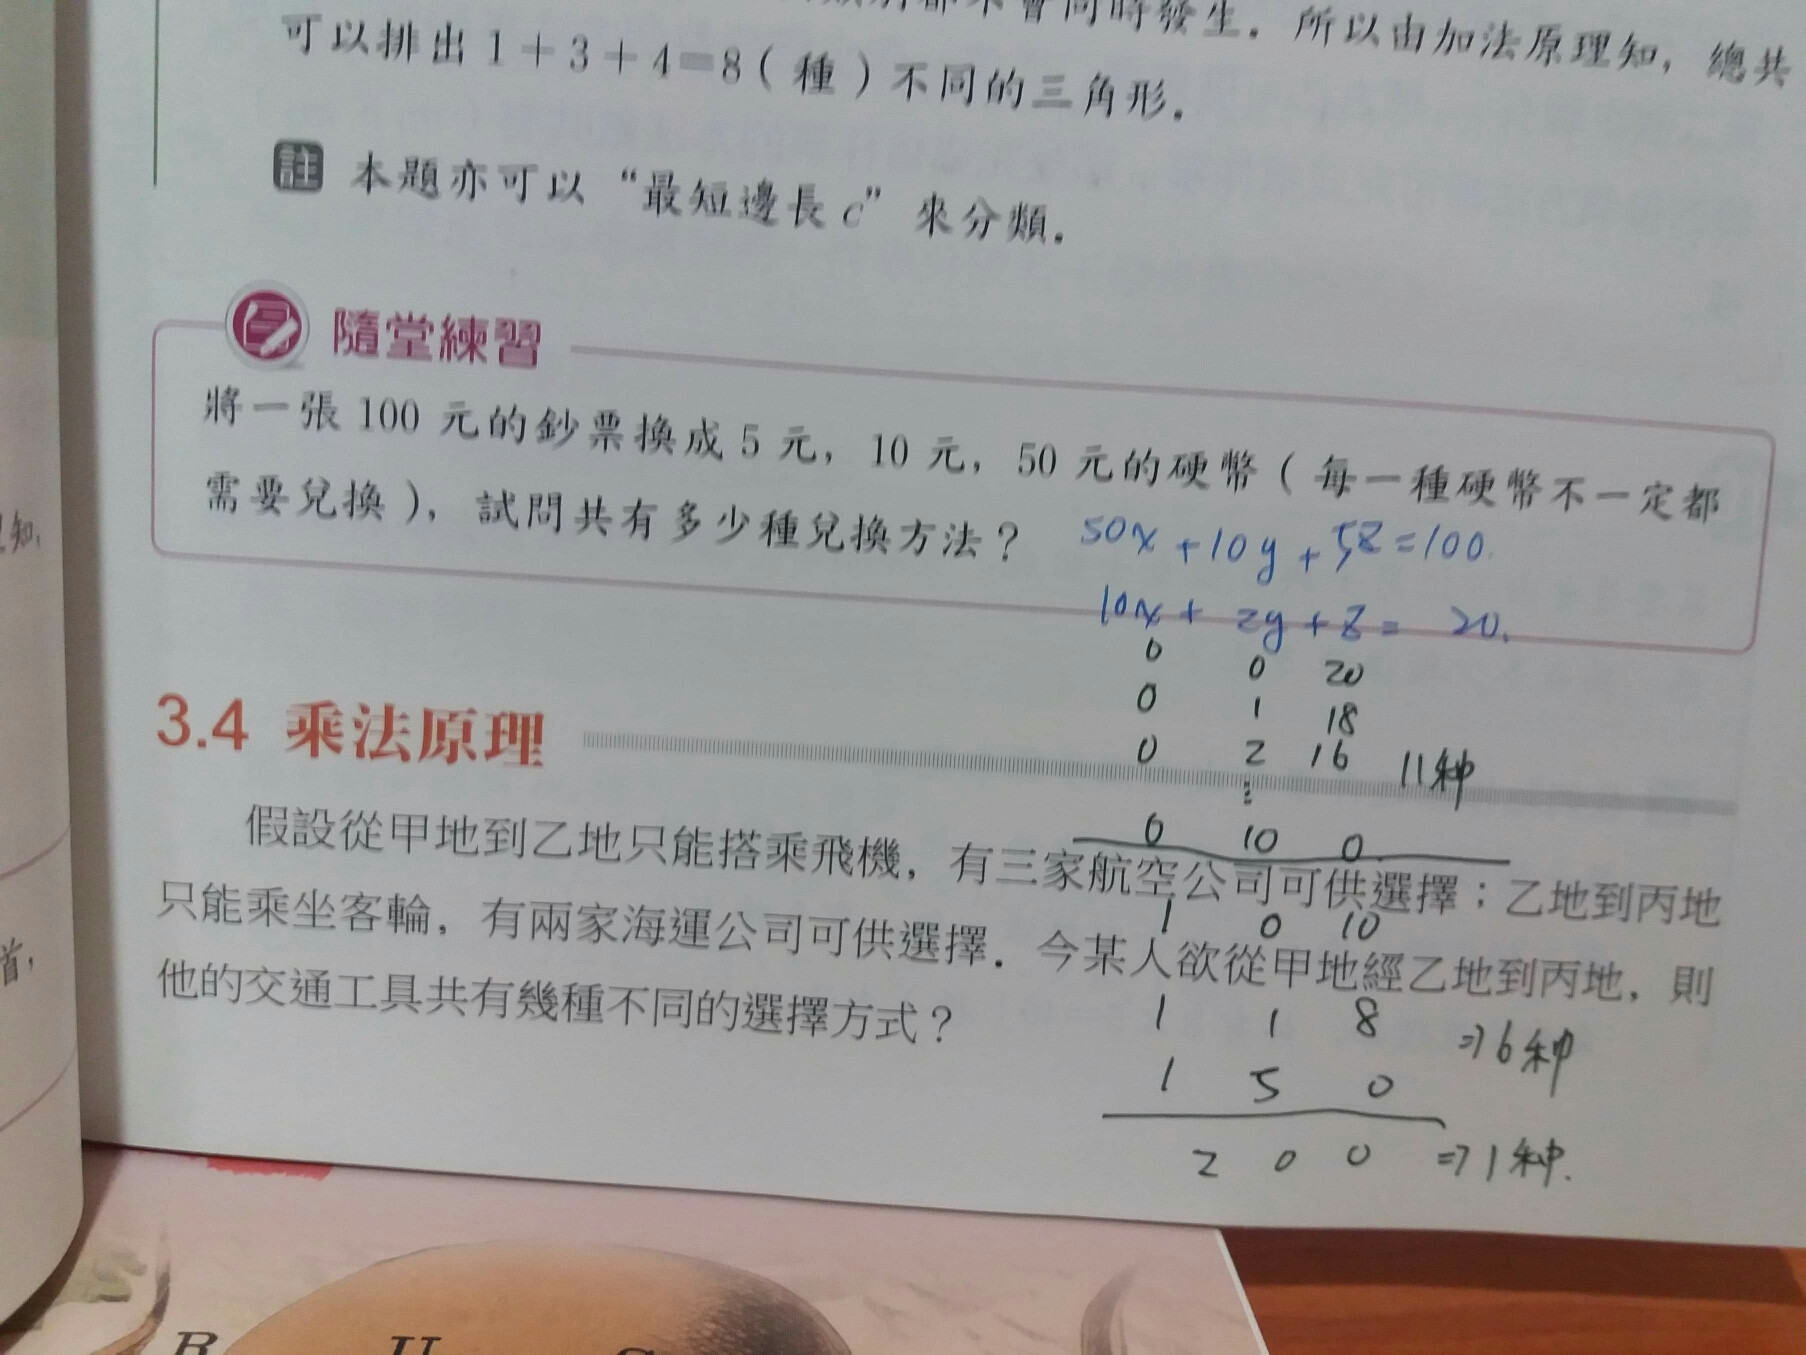 會同時發生．所以由加法原理知，總共
可以排出 1＋3＋4＝8（種）不同的三角形．
註 本題亦可以“最短邊長 c”來分類．
隨堂練習
將一張 100 元的鈔票換成 5 元，10 元，50 元的硬幣（每一種硬幣不一定都
需要兌換），試問共有多少種兌換方法？
50x+10y+5z=100.
10x+2y+z=20.
0 0 20
0 1 18
0 2 16 11种
⋮
0 10 0
1 0 10
1 1 8 ⇒6种
1 5 0
2 0 0 ⇒1种.
3.4 乘法原理
假設從甲地到乙地只能搭乘飛機，有三家航空公司可供選擇；乙地到丙地
只能乘坐客輪，有兩家海運公司可供選擇．今某人欲從甲地經乙地到丙地，則
他的交通工具共有幾種不同的選擇方式？
知，
首，
R U